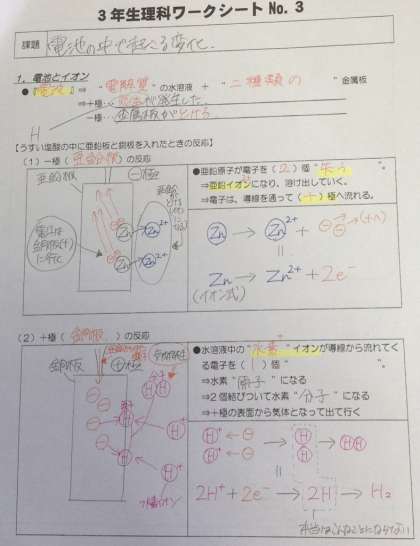 3年生理科ワークシート No. 3
課題
電池の中で起こる変化.
1. 電池とイオン
●「電池」⇒ "電解質"の水溶液 + "二種類の" 金属板
⇒+極…気体が発生した.
−極…金属板がとける
H
【うすい塩酸の中に亜鉛板と銅板を入れたときの反応】
(1)−極(亜鉛板)の反応
亜鉛板
−極
電子は
銅板(+)
に移る
Zn
Zn
Zn²⁺
Zn²⁺
●亜鉛原子が電子を(2)個"失う"
⇒亜鉛イオンになり、溶け出していく。
⇒電子は、導線を通って(+)極へ流れる。
Zn → Zn²⁺ ⊖⊖ →(+へ)
=
Zn → Zn²⁺ + 2e⁻
(イオン式)
(2)+極(銅板)の反応
銅板
+極
H
H
H⁺
H⁺
H⁺
●水溶液中の"水素"イオンが導線から流れてく
る電子を(1)個"
⇒水素"原子"になる
⇒2個結びついて水素"分子"になる
⇒+極の表面から気体となって出て行く
H⁺ ← ⊖
H⁺ ← ⊖
→ H H → HH
=
2H⁺ + 2e⁻ → 2H → H₂
本当はこんなことにならない